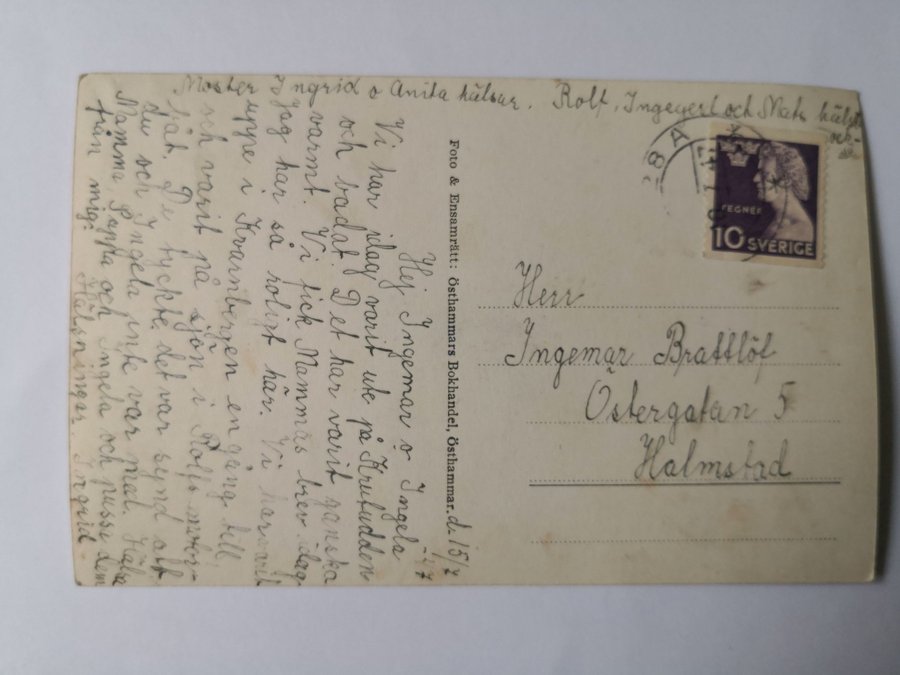 Moster Ingrid o Anita hälsar. Rolf, Ingegerl och Mats hälsar
också
d. 15/7
Hej Ingemar o Ingela
Vi har idag varit ute på Krutudden
och badat. Det har varit ganska
varmt. Vi fick Mammas brev idag
Jag har så roligt här. Vi har varit
uppe i Kvarnbergen en gång till
och varit på sjön i Rolfs
båt. De tyckte det var synd att
du och Ingela inte var med. Hälsa
Mamma, Pappa och Ingela och pussa dem
från mig. Hälsningar. Ingrid.
Foto & Ensamrätt: Östhammars Bokhandel, Östhammar.
28 A
TEGNÉR
10 SVERIGE
Herr
Ingemar Brattlöf
Östergatan 5
Halmstad